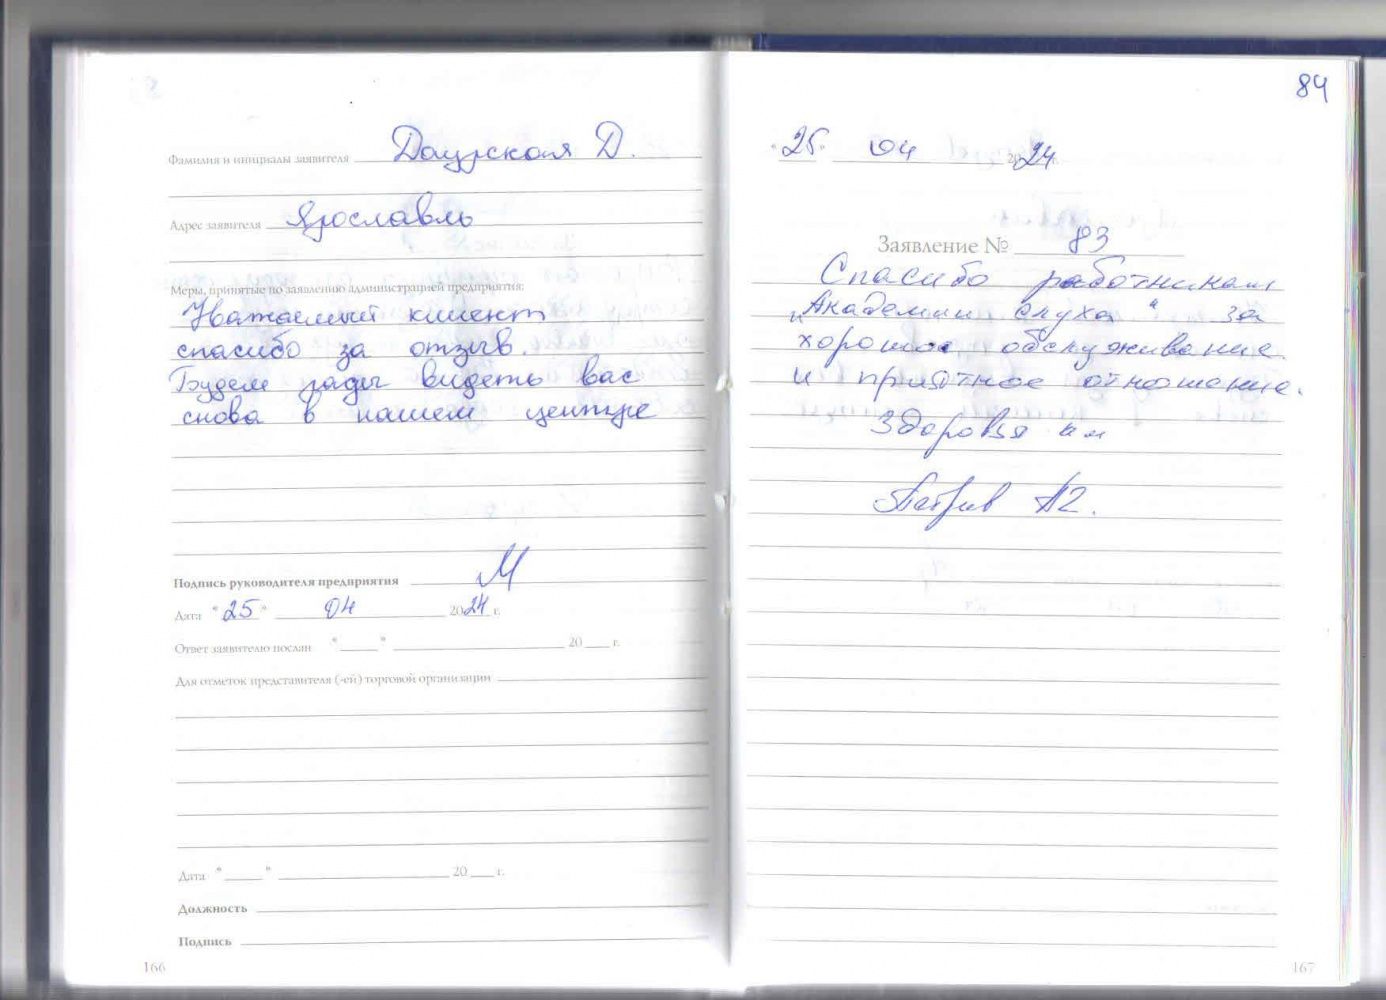 Фамилия и инициалы заявителя Даурская Д.
Адрес заявителя Ярославль
Меры, принятые по заявлению администрацией предприятия:
Уважаемый клиент
спасибо за отзыв.
Будем рады видеть вас
снова в нашем центре
Подпись руководителя предприятия
Дата "25" 04 2024 г.
Ответ заявителю послан "___" ___ 20___ г.
Для отметок представителя (-ей) торговой организации
Дата "___" ___ 20___ г.
Должность
Подпись
166
84
"25" 04 2024 г.
Заявление № 83
Спасибо работникам
"Академии слуха" за
хорошое обслуживание
и приятное отношение.
Здоровья им
167